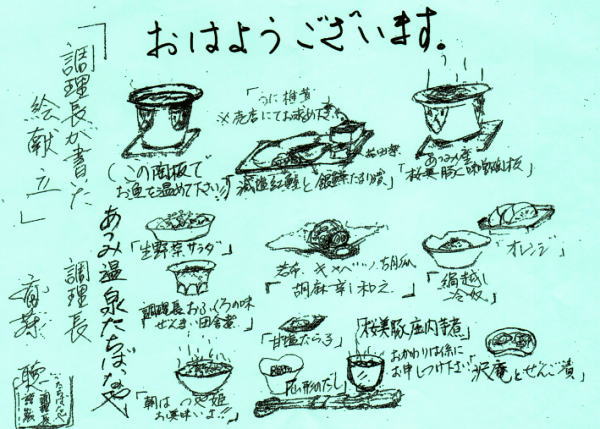 おはようございます。
「調理長が書いた
絵献立」
あつみ温泉たちばなや
調理長
「うに椎茸」
※売店にてお求め下さい
(この陶板で
お魚を温めて下さい)
「減塩紅鮭と銀鱈みりん漬」
あつみ産
「桜美豚と味噌陶板」
「生野菜サラダ」
若布 キャベツ 胡瓜
「胡麻辛し和え」
「絹越し
冷奴」
「オレンジ」
調理長おふくろの味
「ぜんまい田舎煮」
「甘塩たら子」
「桜美豚庄内芋煮」
おかわりは係に
お申しつけ下さい
「沢庵とぜんご漬」
「朝は つや姫
お美味いよ!!」
「山形のだし」